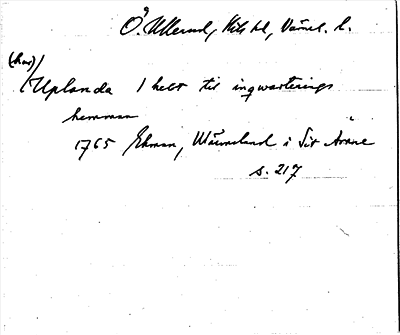 Ö. Ullerud, Kils hd, Värml. l.
(har)
Uplanda 1 helt til inqwarterings
hemman
1765 Ekman, Wärmeland i Sit Ämne
s. 217